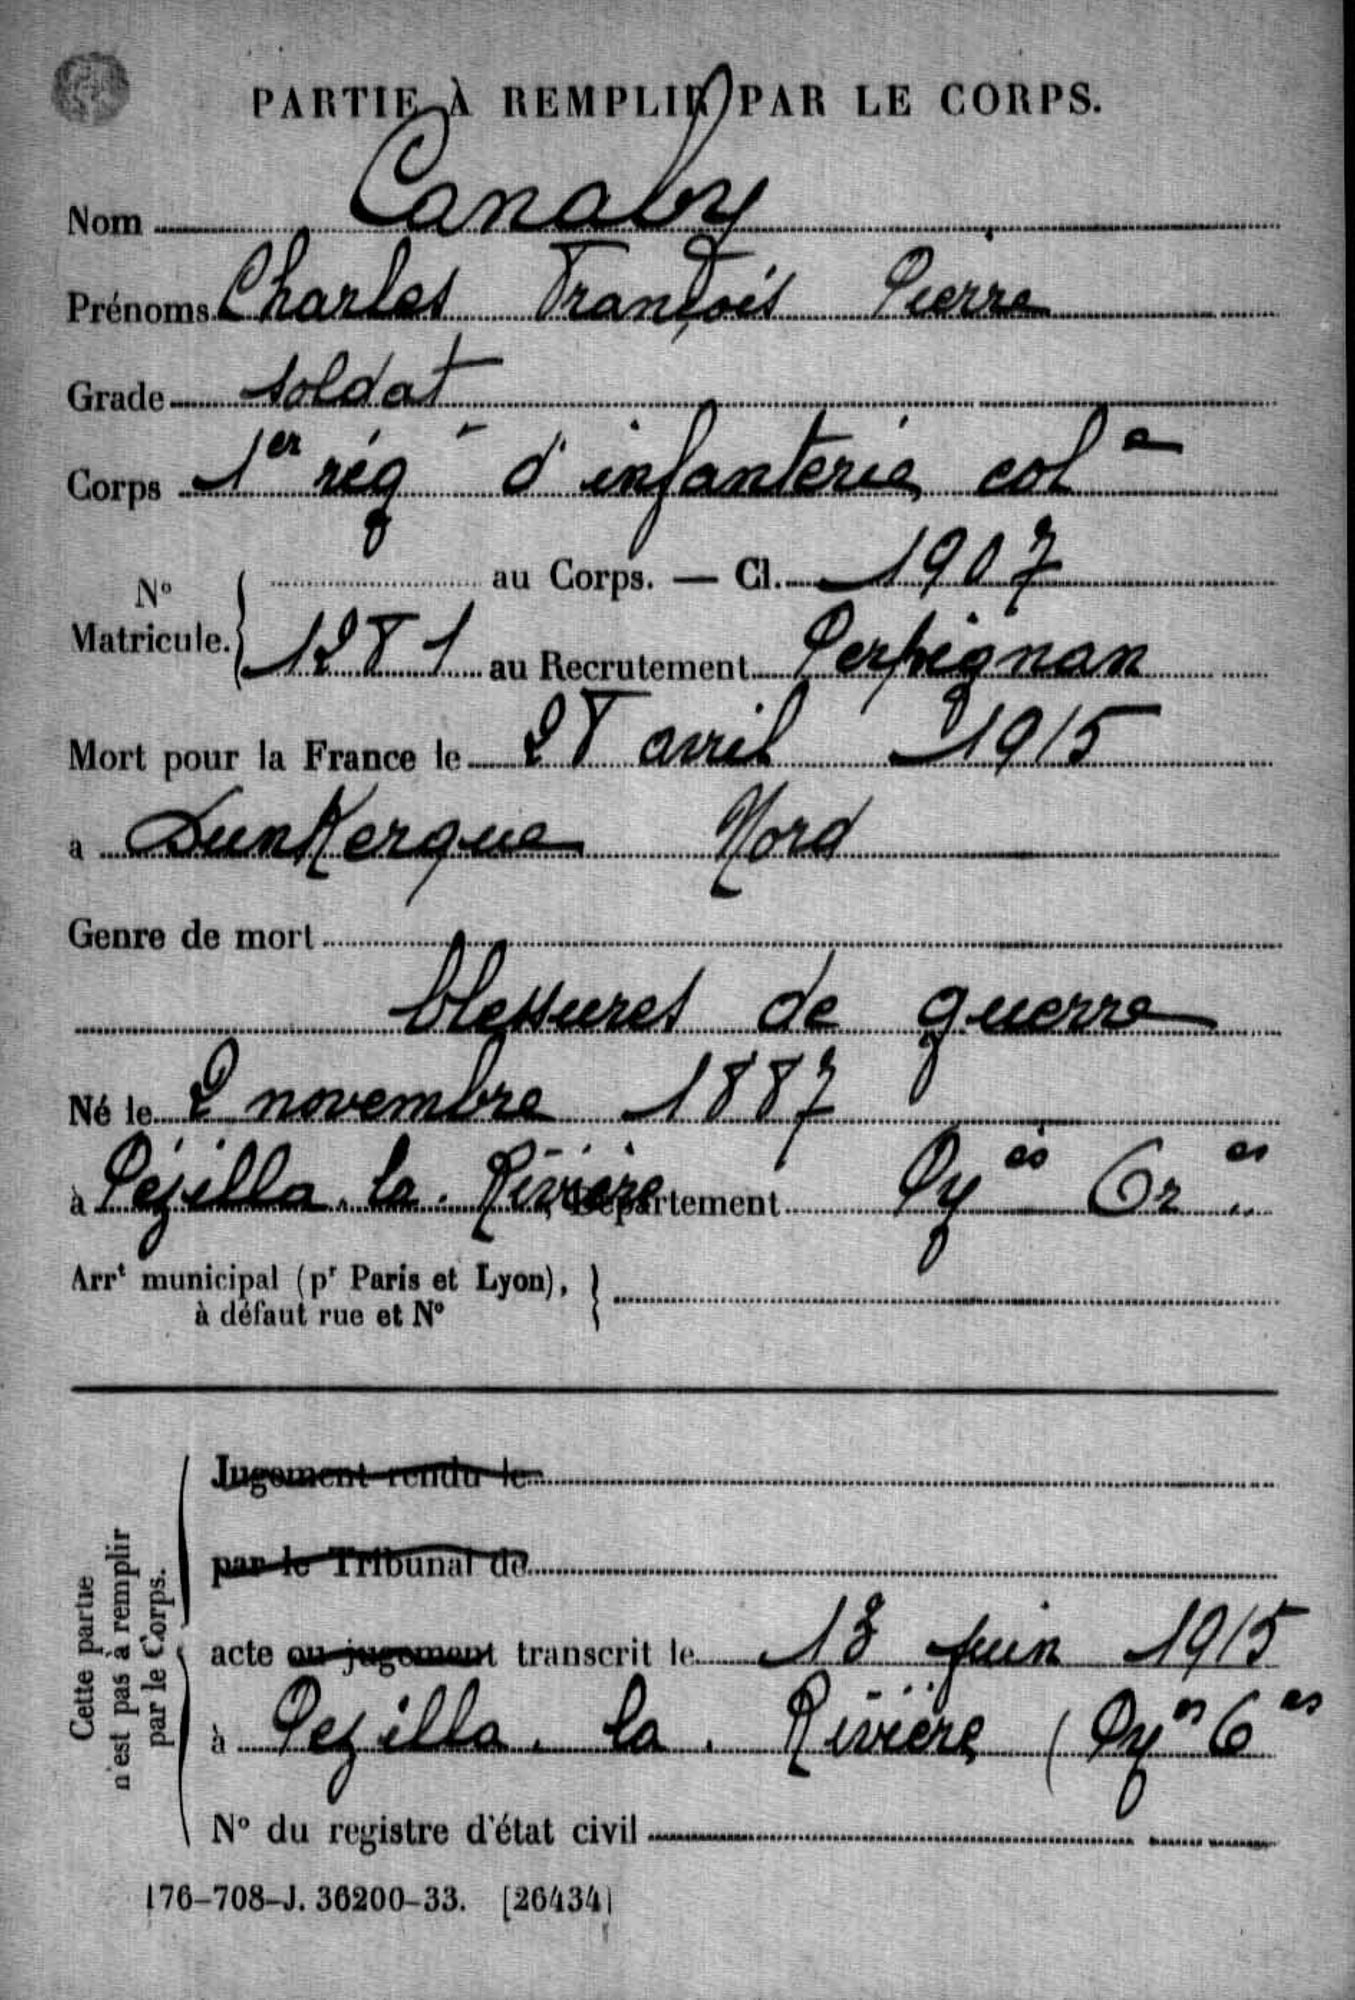 PARTIE À REMPLIR PAR LE CORPS.
Nom Canaby
Prénoms Charles François Pierre
Grade soldat
Corps 1er rég t d'infanterie col e
N° Matricule. { au Corps. — Cl. 1907
1281 au Recrutement Perpignan
Mort pour la France le 28 avril 1915
à Dunkerque Nord
Genre de mort
blessures de guerre
Né le 2 novembre 1887
à Pézilla. la. Rivière Département Py es Or es
Arrt municipal (pr Paris et Lyon), }
à défaut rue et N°
Cette partie n'est pas à remplir par le Corps.
Jugement rendu le
par le Tribunal de
acte ou jugement transcrit le 13 juin 1915
à Pezilla. la. Rivière (Py es O es
N° du registre d'état civil
176-708-J. 36200-33. [26434]